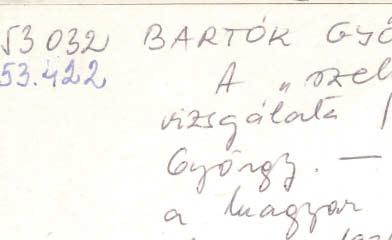 53 032 BARTÓK GYÖ
53.422 A „szel
vizsgálata /
György. —
a magyar